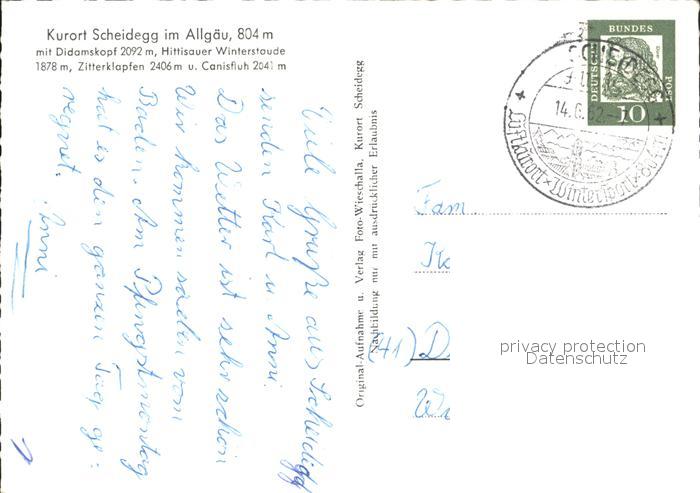 Kurort Scheidegg im Allgäu, 804 m
mit Didamskopf 2092 m, Hittisauer Winterstaude
1878 m, Zitterklapfen 2406 m u. Canisfluh 2041 m
Viele Grüße aus Scheidegg
senden Karl u. Anni.
Das Wetter ist sehr schön
Wir kommen soeben vom
Baden. Am Pfingstmontag
hat es den ganzen Tag ge-
regnet.
Anni
Original-Aufnahme u. Verlag Foto-Wieschalla, Kurort Scheidegg
Nachbildung nur mit ausdrücklicher Erlaubnis
DEUTSCHE
BUNDES
POST
10
SCHEIDEGG
14.6.62
Luftkurort × Wintersport × 804 m
Fam.
(41) D
privacy protection
Datenschutz